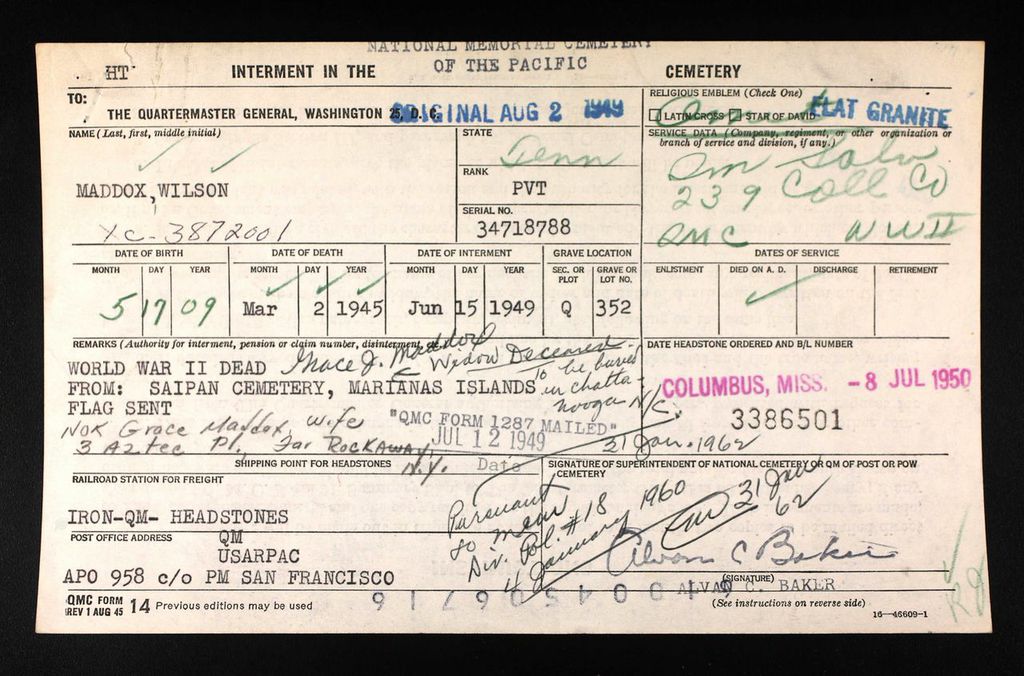 NATIONAL MEMORIAL CEMETERY
OF THE PACIFIC
HT INTERMENT IN THE CEMETERY
TO:
THE QUARTERMASTER GENERAL, WASHINGTON 25, D. C.
ORIGINAL AUG 2 1949
RELIGIOUS EMBLEM (Check One)
LATIN CROSS STAR OF DAVID
FLAT GRANITE
NAME (Last, first, middle initial)
MADDOX, WILSON
XC-3872001
STATE
Tenn
RANK
PVT
SERIAL NO.
34718788
SERVICE DATA (Company, regiment, or other organization or
branch of service and division, if any.)
QM Salv
239 Coll Co
QMC WWII
DATE OF BIRTH DATE OF DEATH DATE OF INTERMENT GRAVE LOCATION DATES OF SERVICE
MONTH DAY YEAR MONTH DAY YEAR MONTH DAY YEAR SEC. OR PLOT GRAVE OR LOT NO. ENLISTMENT DIED ON A. D. DISCHARGE RETIREMENT
5 17 09 Mar 2 1945 Jun 15 1949 Q 352
REMARKS (Authority for interment, pension or claim number, disinterment,
Grace J. Maddox
Widow Deceased
to be buried
in Chatta-
nooga N.C.
31 Jan. 1962
WORLD WAR II DEAD
FROM: SAIPAN CEMETERY, MARIANAS ISLANDS
FLAG SENT
NOK Grace Maddox, wife
3 Aztec Pl., Far Rockaway
N.Y.
"QMC FORM 1287 MAILED"
JUL 12 1949
Date
DATE HEADSTONE ORDERED AND B/L NUMBER
COLUMBUS, MISS. - 8 JUL 1950
3386501
SHIPPING POINT FOR HEADSTONES
RAILROAD STATION FOR FREIGHT
IRON-QM- HEADSTONES
POST OFFICE ADDRESS
QM
USARPAC
APO 958 c/o PM SAN FRANCISCO
Pursuant
to mem
Div. Pol. #18
11 January 1960
31 Jan
62
SIGNATURE OF SUPERINTENDENT OF NATIONAL CEMETERY OR QM OF POST OR POW
CEMETERY
Alvan C Baker
(SIGNATURE)
ALVAN C. BAKER
(See instructions on reverse side)
QMC FORM
REV 1 AUG 45 14 Previous editions may be used
16-46609-1